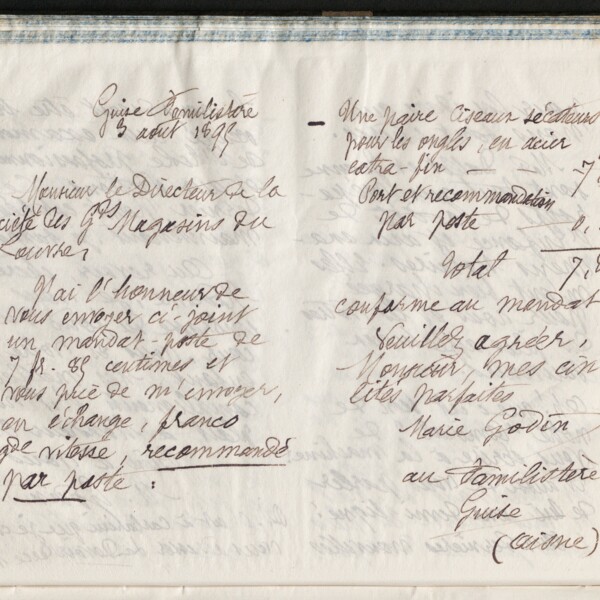 Guise Familistère
3 août 1895
Monsieur le Directeur de la
ciété des Gds Magasins du
Louvre,
J'ai l'honneur de
vous envoyer ci-joint
un mandat-poste de
7 fr. 85 centimes et
vous prie de m'envoyer,
en échange, franco
gde vitesse, recommandé
par poste :
- Une paire ciseaux sécateurs
pour les ongles, en acier
extra-fin — — 7,
Port et recommandation
par poste 0,
Total 7,8
conforme au mandat
Veuillez agréer,
Monsieur, mes civi
lités parfaites
Marie Godin
au Familistère
Guise
(Aisne)